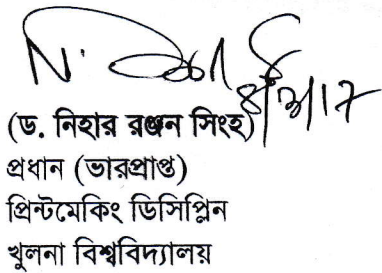 (ড. নিহার রঞ্জন সিংহ)
প্রধান (ভারপ্রাপ্ত)
প্রিন্টমেকিং ডিসিপ্লিন
খুলনা বিশ্ববিদ্যালয়